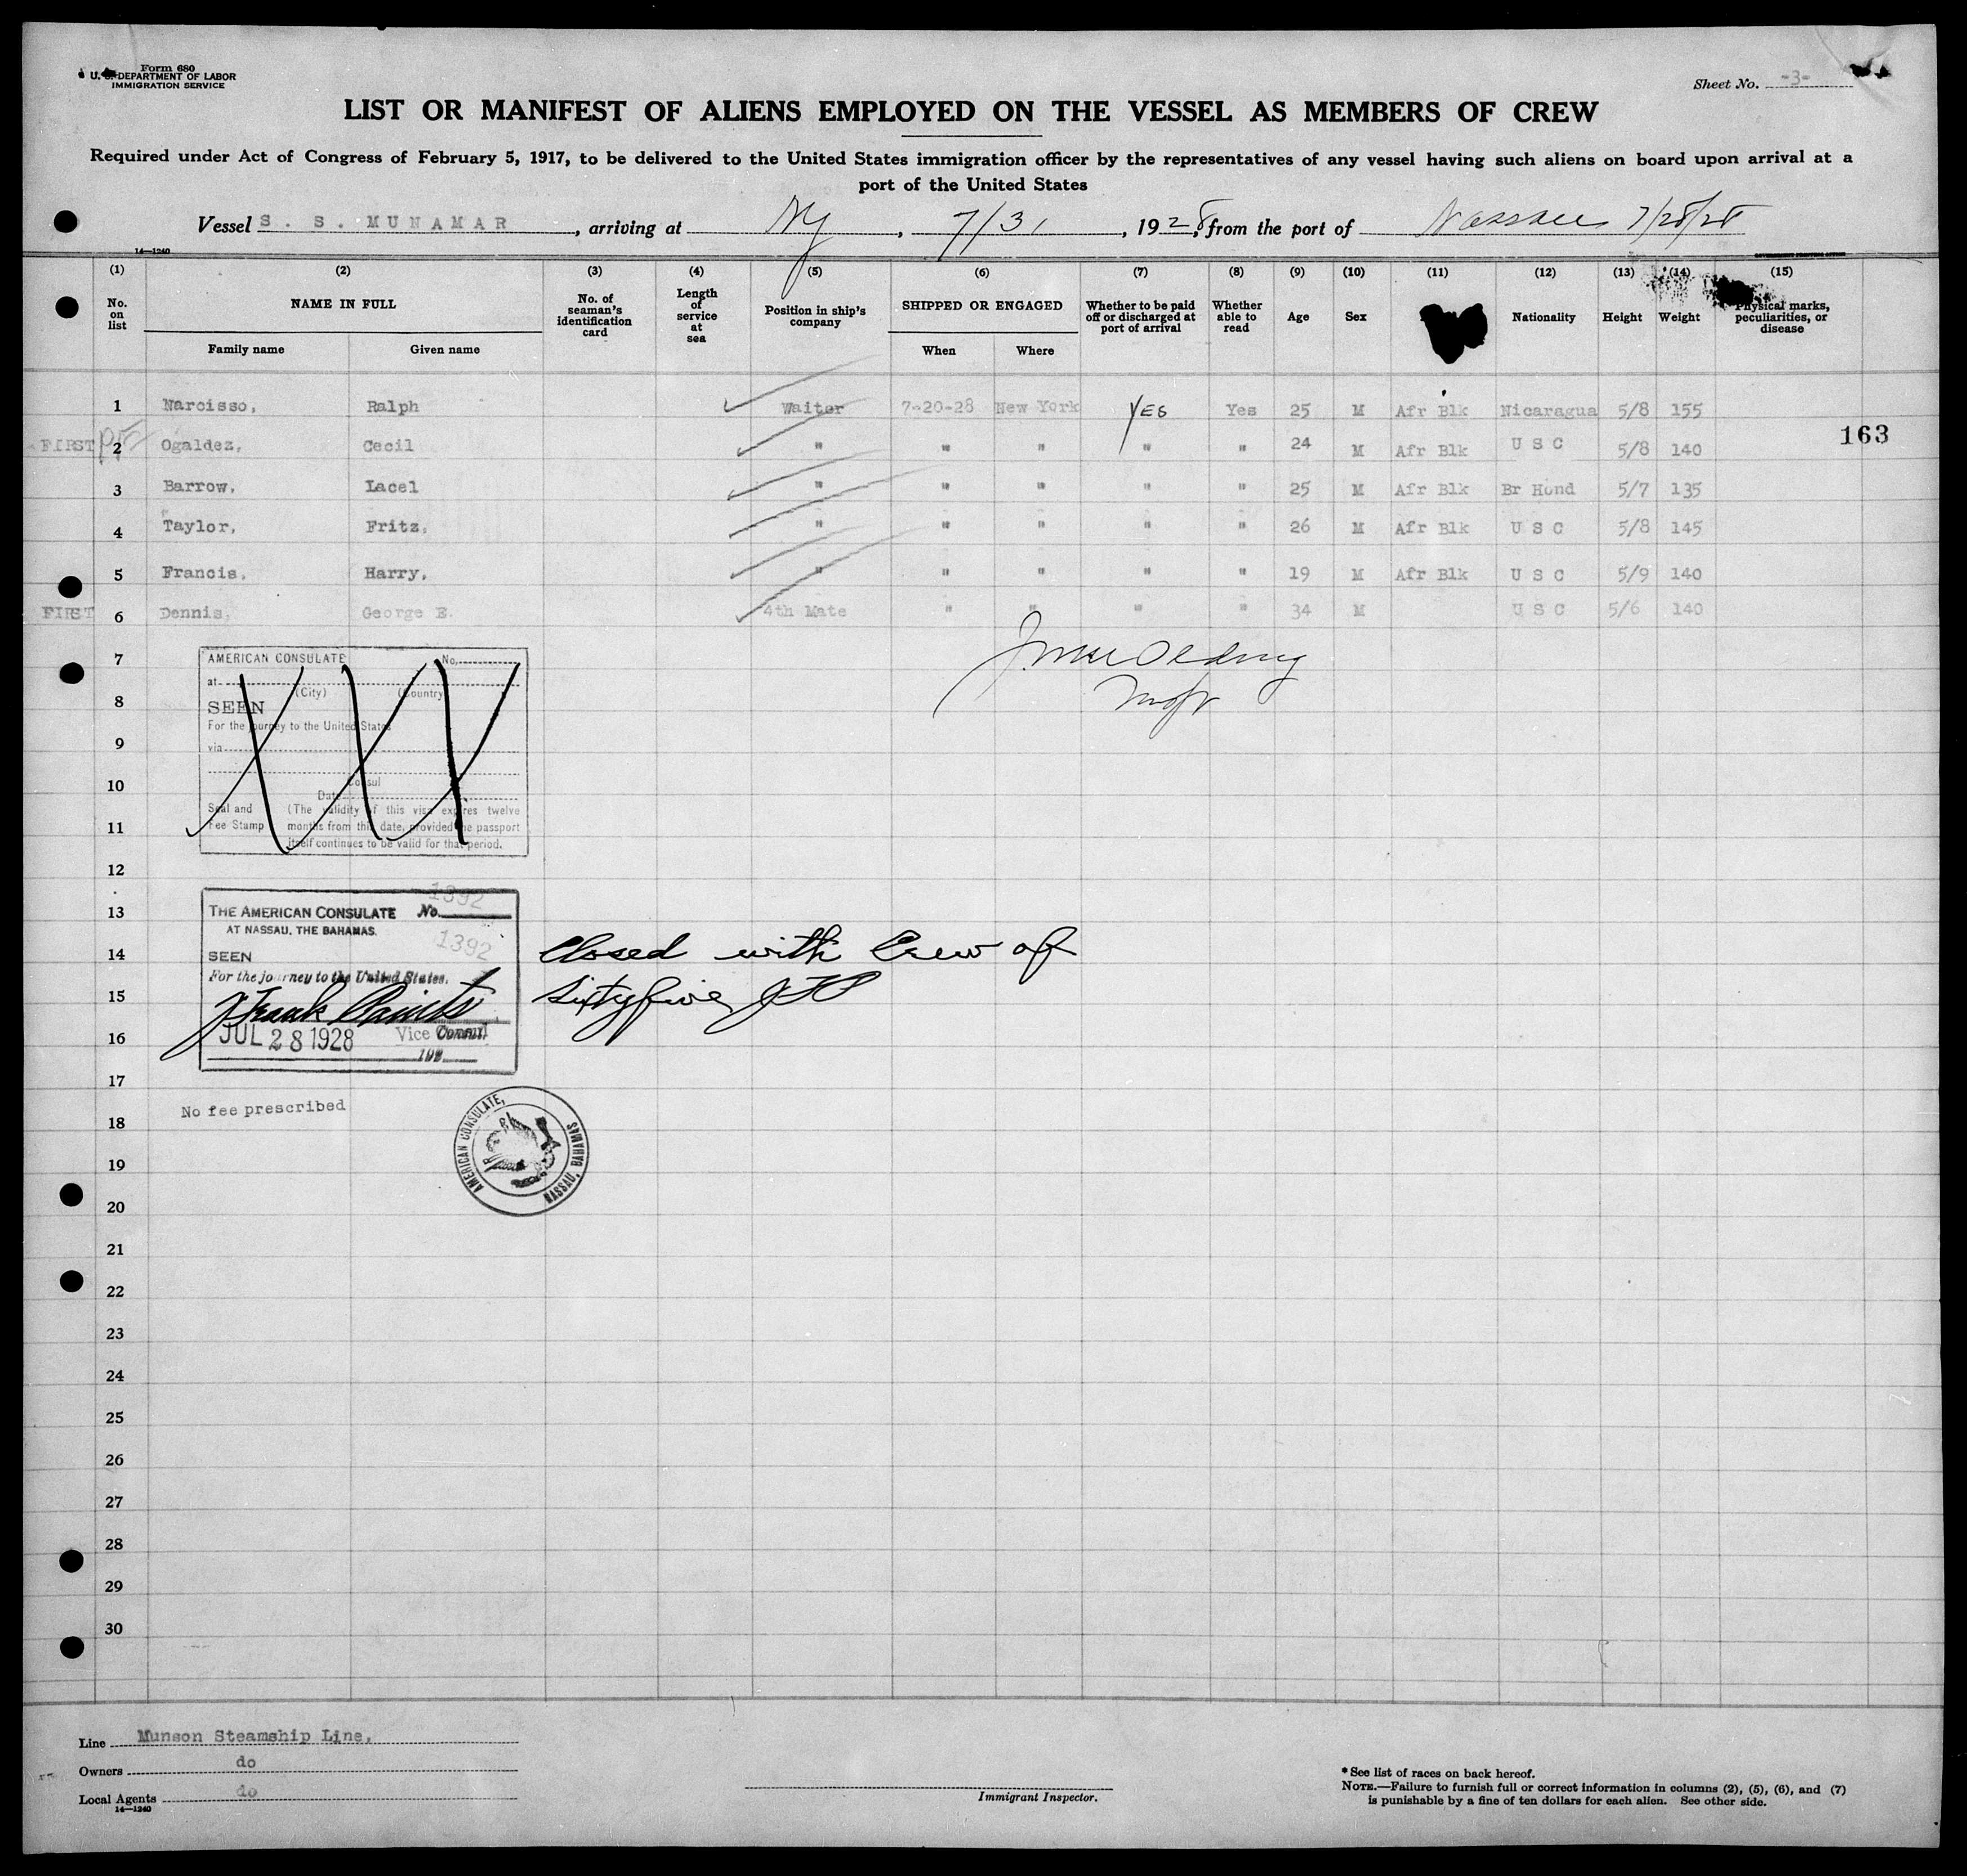 Form 680
U. S. DEPARTMENT OF LABOR
IMMIGRATION SERVICE
Sheet No. -3-
LIST OR MANIFEST OF ALIENS EMPLOYED ON THE VESSEL AS MEMBERS OF CREW
Required under Act of Congress of February 5, 1917, to be delivered to the United States immigration officer by the representatives of any vessel having such aliens on board upon arrival at a
port of the United States
Vessel S. S. MUNAMAR, arriving at NY, 7/31, 1928, from the port of Nassau 7/28/28
14—1240
(1) (2) (3) (4) (5) (6) (7) (8) (9) (10) (11) (12) (13) (14) (15)
No. on list NAME IN FULL No. of seaman's identification card Length of service at sea Position in ship's company SHIPPED OR ENGAGED Whether to be paid off or discharged at port of arrival Whether able to read Age Sex Nationality Height Weight Physical marks, peculiarities, or disease
Family name Given name When Where
1 Narcisso, Ralph Waiter 7-20-28 New York YES Yes 25 M Afr Blk Nicaragua 5/8 155
FIRST 2 Ogaldez, Cecil " " " " " 24 M Afr Blk U S C 5/8 140
163
3 Barrow, Lacel " " " " " 25 M Afr Blk Br Hond 5/7 135
4 Taylor, Fritz, " " " " " 26 M Afr Blk U S C 5/8 145
5 Francis, Harry, " " " " " 19 M Afr Blk U S C 5/9 140
FIRST 6 Dennis, George E. 4th Mate " " " " 34 M U S C 5/6 140
7
8
9
10
11
12
13
14
15
16
17
18
19
20
21
22
23
24
25
26
27
28
29
30
AMERICAN CONSULATE No.
at
(City) (Country)
SEEN
For the journey to the United States
via
Consul
Date
Seal and Fee Stamp
(The validity of this visa expires twelve
months from this date, provided the passport
itself continues to be valid for that period.
1392
THE AMERICAN CONSULATE No.
AT NASSAU, THE BAHAMAS.
1392
SEEN
For the journey to the United States.
JUL 28 1928 Vice Consul
192
Closed with Crew of
Sixtyfive
No fee prescribed
AMERICAN CONSULATE,
NASSAU, BAHAMAS
Line Munson Steamship Line,
Owners do
Local Agents do
14—1240
Immigrant Inspector.
* See list of races on back hereof.
NOTE.—Failure to furnish full or correct information in columns (2), (5), (6), and (7)
is punishable by a fine of ten dollars for each alien. See other side.